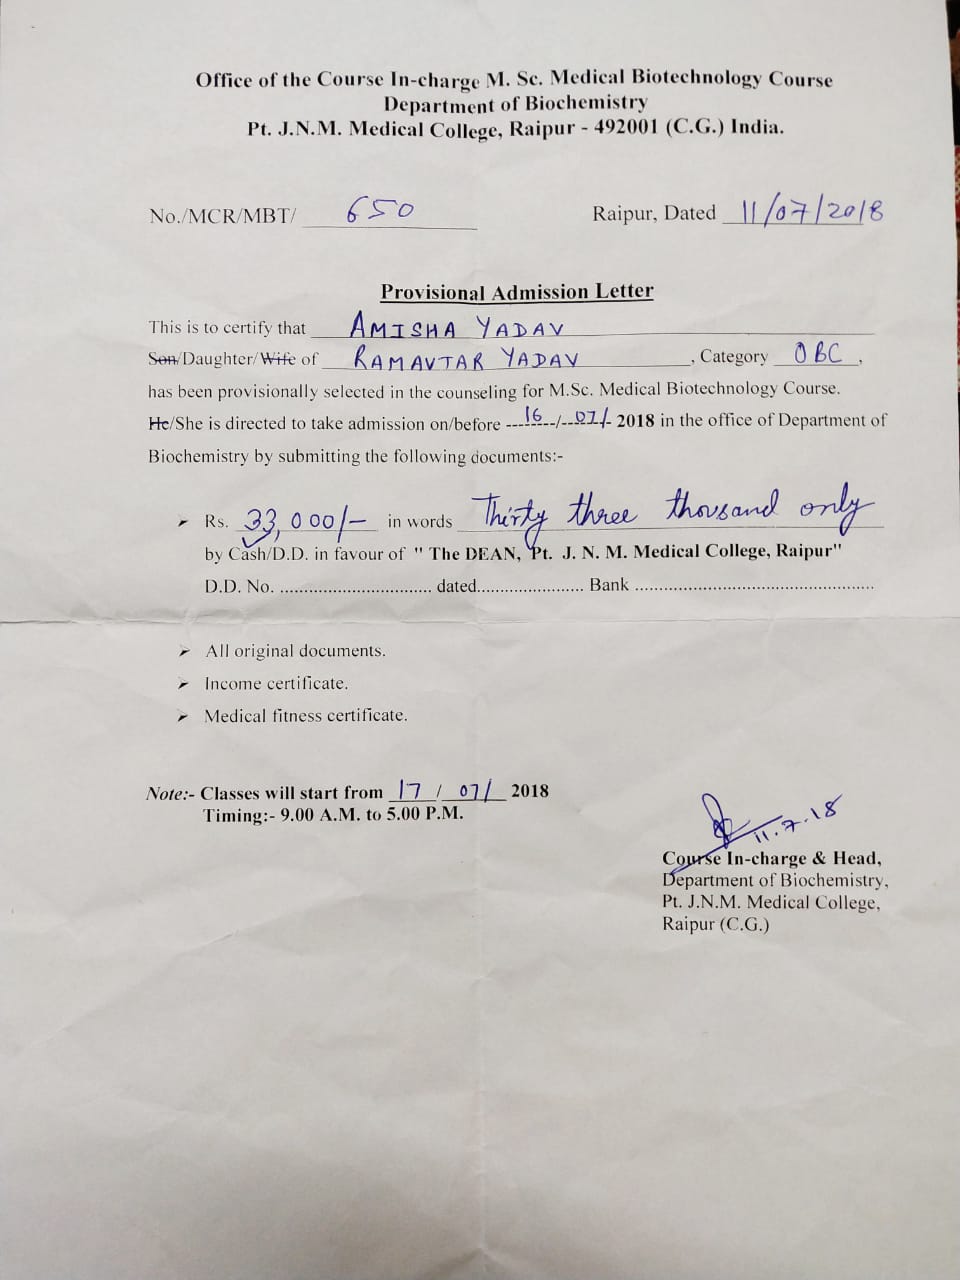 Office of the Course In-charge M. Sc. Medical Biotechnology Course
Department of Biochemistry
Pt. J.N.M. Medical College, Raipur - 492001 (C.G.) India.
No./MCR/MBT/ 650 Raipur, Dated 11/07/2018
Provisional Admission Letter
This is to certify that AMISHA YADAV
Son/Daughter/Wife of RAMAVTAR YADAV, Category OBC,
has been provisionally selected in the counseling for M.Sc. Medical Biotechnology Course.
He/She is directed to take admission on/before ---16---/--07/- 2018 in the office of Department of
Biochemistry by submitting the following documents:-
➢ Rs. 33,000/- in words Thirty three thousand only
by Cash/D.D. in favour of " The DEAN, Pt. J. N. M. Medical College, Raipur"
D.D. No. ................................ dated....................... Bank ..................................................
➢ All original documents.
➢ Income certificate.
➢ Medical fitness certificate.
Note:- Classes will start from 17 / 07/ 2018
Timing:- 9.00 A.M. to 5.00 P.M.
11.7.18
Course In-charge & Head,
Department of Biochemistry,
Pt. J.N.M. Medical College,
Raipur (C.G.)